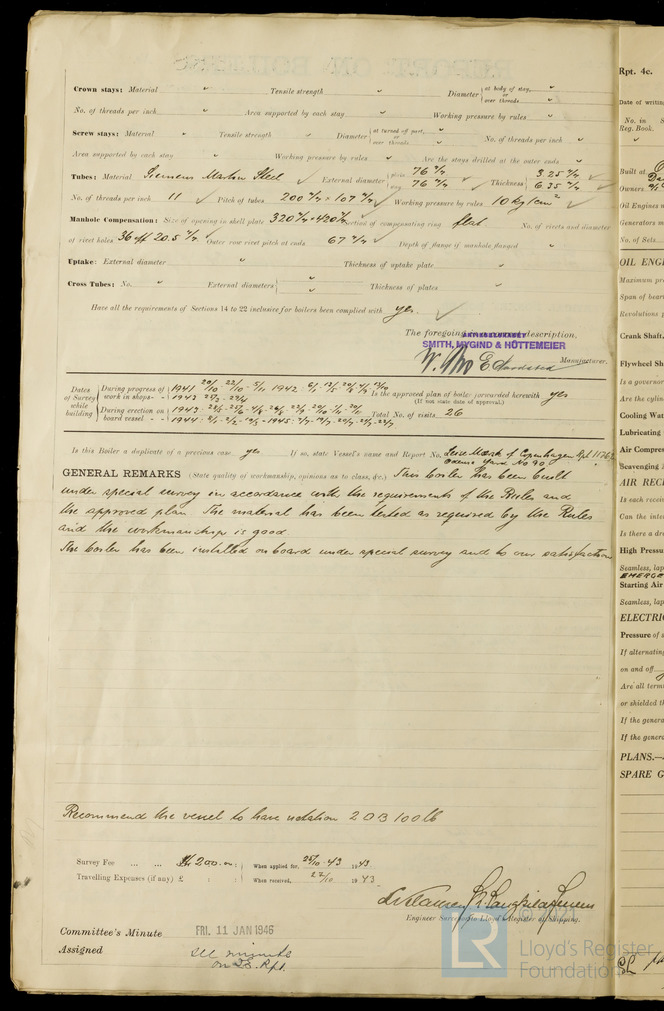 Crown stays: Material " Tensile strength " Diameter at body of stay, or over threads "
No. of threads per inch " Area supported by each stay " Working pressure by rules "
Screw stays: Material " Tensile strength " Diameter at turned off part, or over threads " No. of threads per inch "
Area supported by each stay " Working pressure by rules " Are the stays drilled at the outer ends "
Tubes: Material Siemens Martin Steel External diameter plain 76 m/m stay 76 m/m Thickness 3.25 m/m 6.35 m/m
No. of threads per inch 11 Pitch of tubes 200 m/m × 107 m/m Working pressure by rules 10 kg/cm²
Manhole Compensation: Size of opening in shell plate 320 m/m × 420 m/m Section of compensating ring flat No. of rivets and diameter
of rivet holes 36 off 20.5 m/m Outer row rivet pitch at ends 67 m/m Depth of flange if manhole flanged "
Uptake: External diameter " Thickness of uptake plate "
Cross Tubes: No. " External diameters " Thickness of plates "
Have all the requirements of Sections 14 to 22 inclusive for boilers been complied with yes.
The foregoing is a correct description,
AKTIESELSKABET
SMITH, MYGIND & HÜTTEMEIER
Manufacturer.
Dates of Survey while building
During progress of work in shops - - 1941 20/10 22/10 1942
During erection on board vessel - - - 1943 1944 1945
Is the approved plan of boiler forwarded herewith yes
(If not state date of approval.)
Total No. of visits 26
Is this Boiler a duplicate of a previous case yes If so, state Vessel's name and Report No. Maersk of Copenhagen Rpt
Odense Yard No 90
GENERAL REMARKS (State quality of workmanship, opinions as to class, &c.) This boiler has been built
under special survey in accordance with the requirements of the Rules and
the approved plan. The material has been tested as required by the Rules
and the workmanship is good
The boiler has been installed onboard under special survey and to our satisfaction
Recommend the vessel to have notation 2 DB 100 lb
Survey Fee ... ... 200.00 : When applied for, 25/10 43 1943
Travelling Expenses (if any) £ : : When received, 27/10 1943
Engineer Surveyor to Lloyd's Register of Shipping.
Committee's Minute FRI. 11 JAN 1946
Assigned see minute
on F.E. Rpt.
© 2021
LR
Lloyd's Register
Foundation
Rpt. 4c.
Date of writin
No. in
Reg. Book.
Built at
Owners
Oil Engines
Generators m
No. of Sets
OIL ENG
Maximum pre
Span of bear
Revolutions p
Crank Shaft,
Flywheel Sh
Is a governor
Are the cylin
Cooling Wat
Lubricating
Air Compres
Scavenging
AIR REC
Is each receiv
Can the inte
Is there a dr
High Pressu
Seamless, lap
EMERGE
Starting Air
Seamless, lap
ELECTRI
Pressure of s
If alternating
on and off
Are all term
or shielded th
If the genera
If the genera
PLANS.—
SPARE G